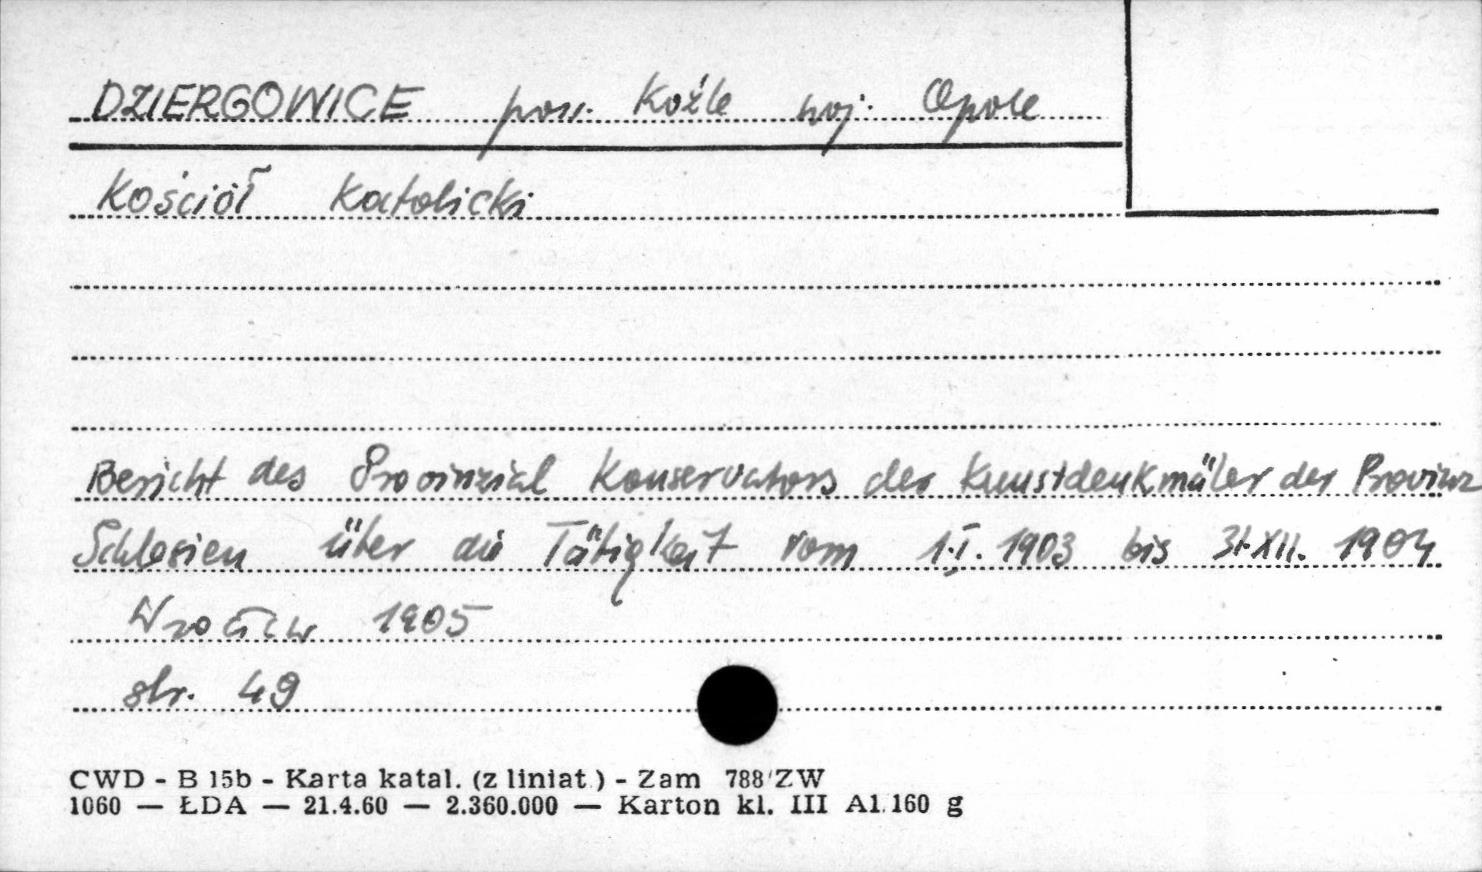 DZIERGOWICE pow. Koźle woj. Opole
Kościół Katolicki
Bericht des Provinzial Konservators der Kunstdenkmäler der Provinz
Schlesien über die Tätigkeit vom 1.I. 1903 bis 31.XII. 1904
Wrocław 1905
str. 49
CWD - B 15b - Karta katal. (z liniat.) - Zam 788/ZW
1060 — ŁDA — 21.4.60 — 2.360.000 — Karton kl. III A1.160 g